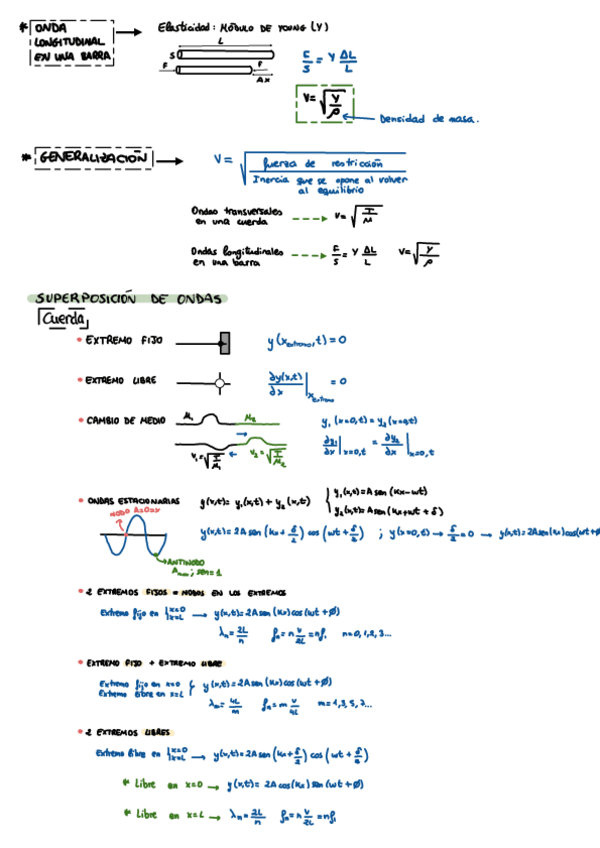 * ONDA LONGITUDINAL EN UNA BARRA → Elasticidad: MÓDULO DE YOUNG (Y)
L
S
F F
Δx
F/S = Y ΔL/L
V = √(Y/ρ)
Densidad de masa.
* GENERALIZACIÓN → V = √(fuerza de restricción / Inercia que se opone al volver al equilibrio)
Ondas transversales en una cuerda ---> V = √(T/μ)
Ondas longitudinales en una barra ---> F/S = Y ΔL/L V = √(Y/ρ)
SUPERPOSICIÓN DE ONDAS
Cuerda
• EXTREMO FIJO y(x_extremo, t) = 0
• EXTREMO LIBRE ∂y(x,t)/∂x |x_extremo = 0
• CAMBIO DE MEDIO μ₁ μ₂ y₁(x=0,t) = y₂(x=0,t)
V₁ = √(T/μ₁) V₂ = √(T/μ₂) ∂y₁/∂x |x=0,t = ∂y₂/∂x |x=0,t
• ONDAS ESTACIONARIAS y(x,t) = y₁(x,t) + y₂(x,t) { y₁(x,t) = A sen(kx-wt)
y₂(x,t) = A sen(kx+wt+δ)
NODO A=0
y(x,t) = 2A sen(kx + δ/2) cos(wt + δ/2) ; y(x=0,t) → δ/2 = 0 → y(x,t) = 2A sen(kx) cos(wt+
ANTINODO
; sen = 1
• 2 EXTREMOS FIJOS = NODOS EN LOS EXTREMOS
Extremo fijo en { x=0 x=L → y(x,t) = 2A sen(kx) cos(wt + ∅)
λn = 2L/n fn = n V/2L = nf₁ n = 0,1,2,3...
• EXTREMO FIJO + EXTREMO LIBRE
Extremo fijo en x=0
Extremo libre en x=L } y(x,t) = 2A sen(kx) cos(wt + ∅)
λm = 4L/m fm = m V/4L m = 1,3,5,7...
• 2 EXTREMOS LIBRES
Extremo libre en { x=0 x=L → y(x,t) = 2A sen(kx + δ/2) cos(wt + δ/2)
* Libre en x=0 → y(x,t) = 2A cos(kx) sen(wt + ∅)
* Libre en x=L → λn = 2L/n fn = n V/2L = nf₁